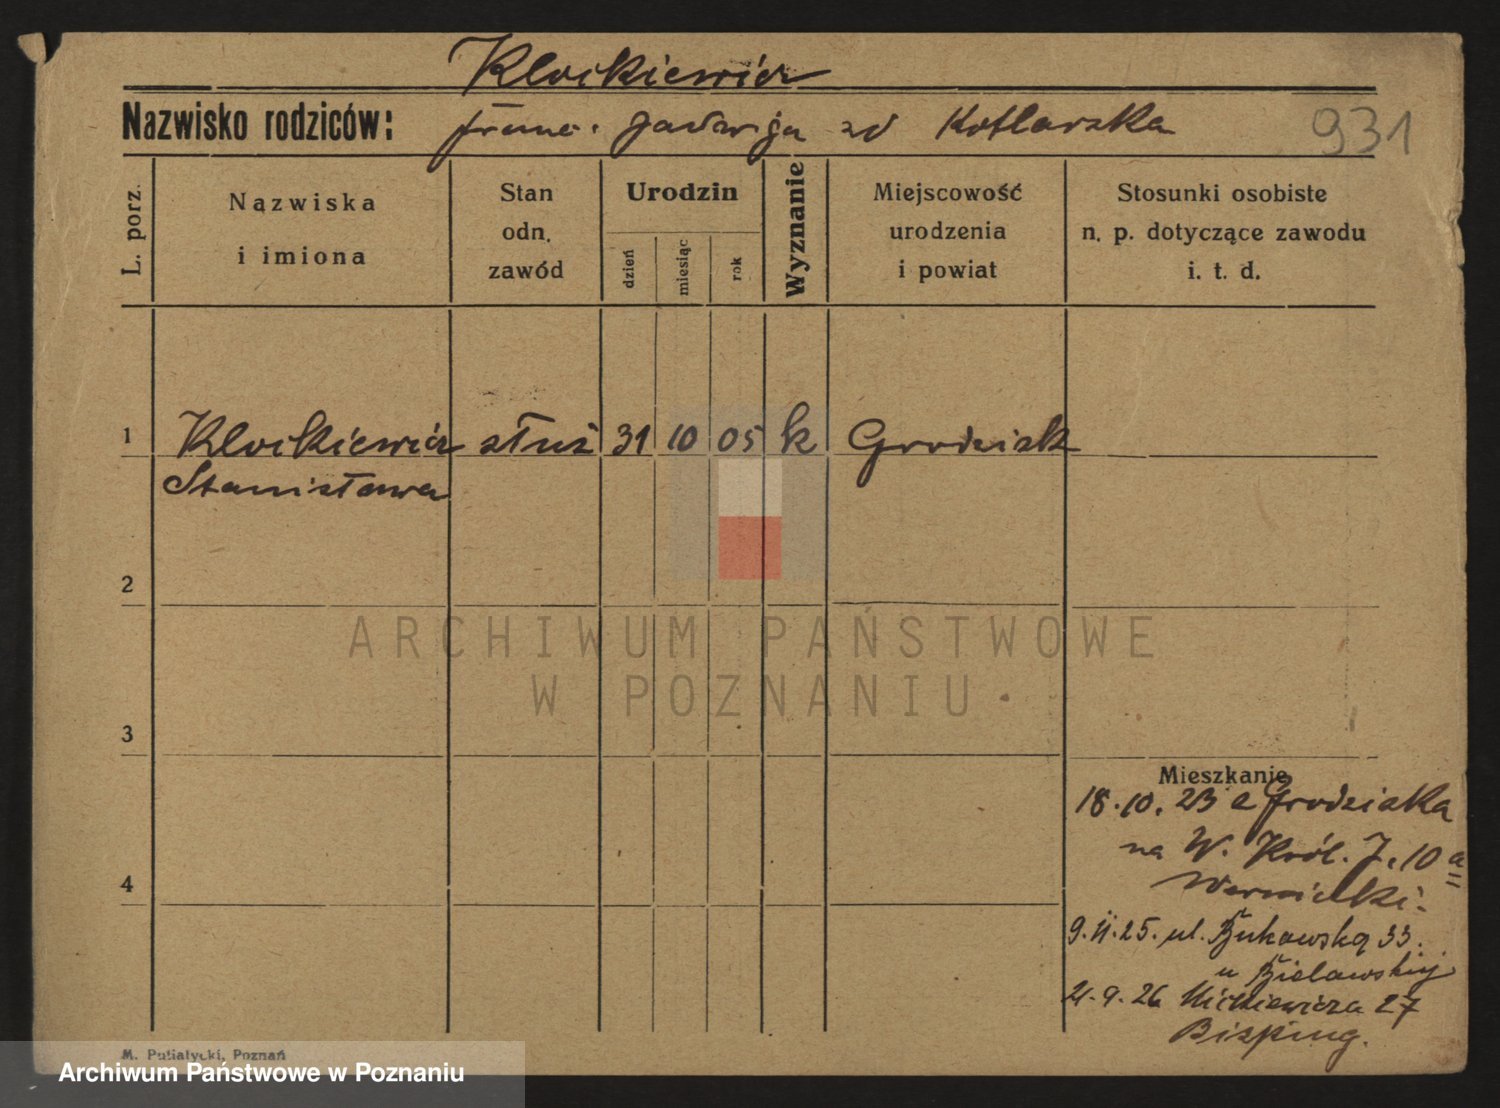 Klockiewicz
Nazwisko rodziców: Franc. Jadwiga zd Kotlarska 931
L. porz.
Nazwiska
i imiona
Stan
odn.
zawód
Urodzin
dzień
miesiąc
rok
Wyznanie
Miejscowość
urodzenia
i powiat
Stosunki osobiste
n. p. dotyczące zawodu
i. t. d.
1 Klockiewicz służ 31 10 05 k Grodzisk
Stanisława
2
3
4
Mieszkanie
18.10.23 z Grodziska
na W. Król. J. 10 a
9.II.25. ul. Bukowska 33.
u Bielawskiej
21.9.26 Mickiewicza 27
Bisping.
M. Putiatycki, Poznań
ARCHIWUM PAŃSTWOWE
W POZNANIU
Archiwum Państwowe w Poznaniu